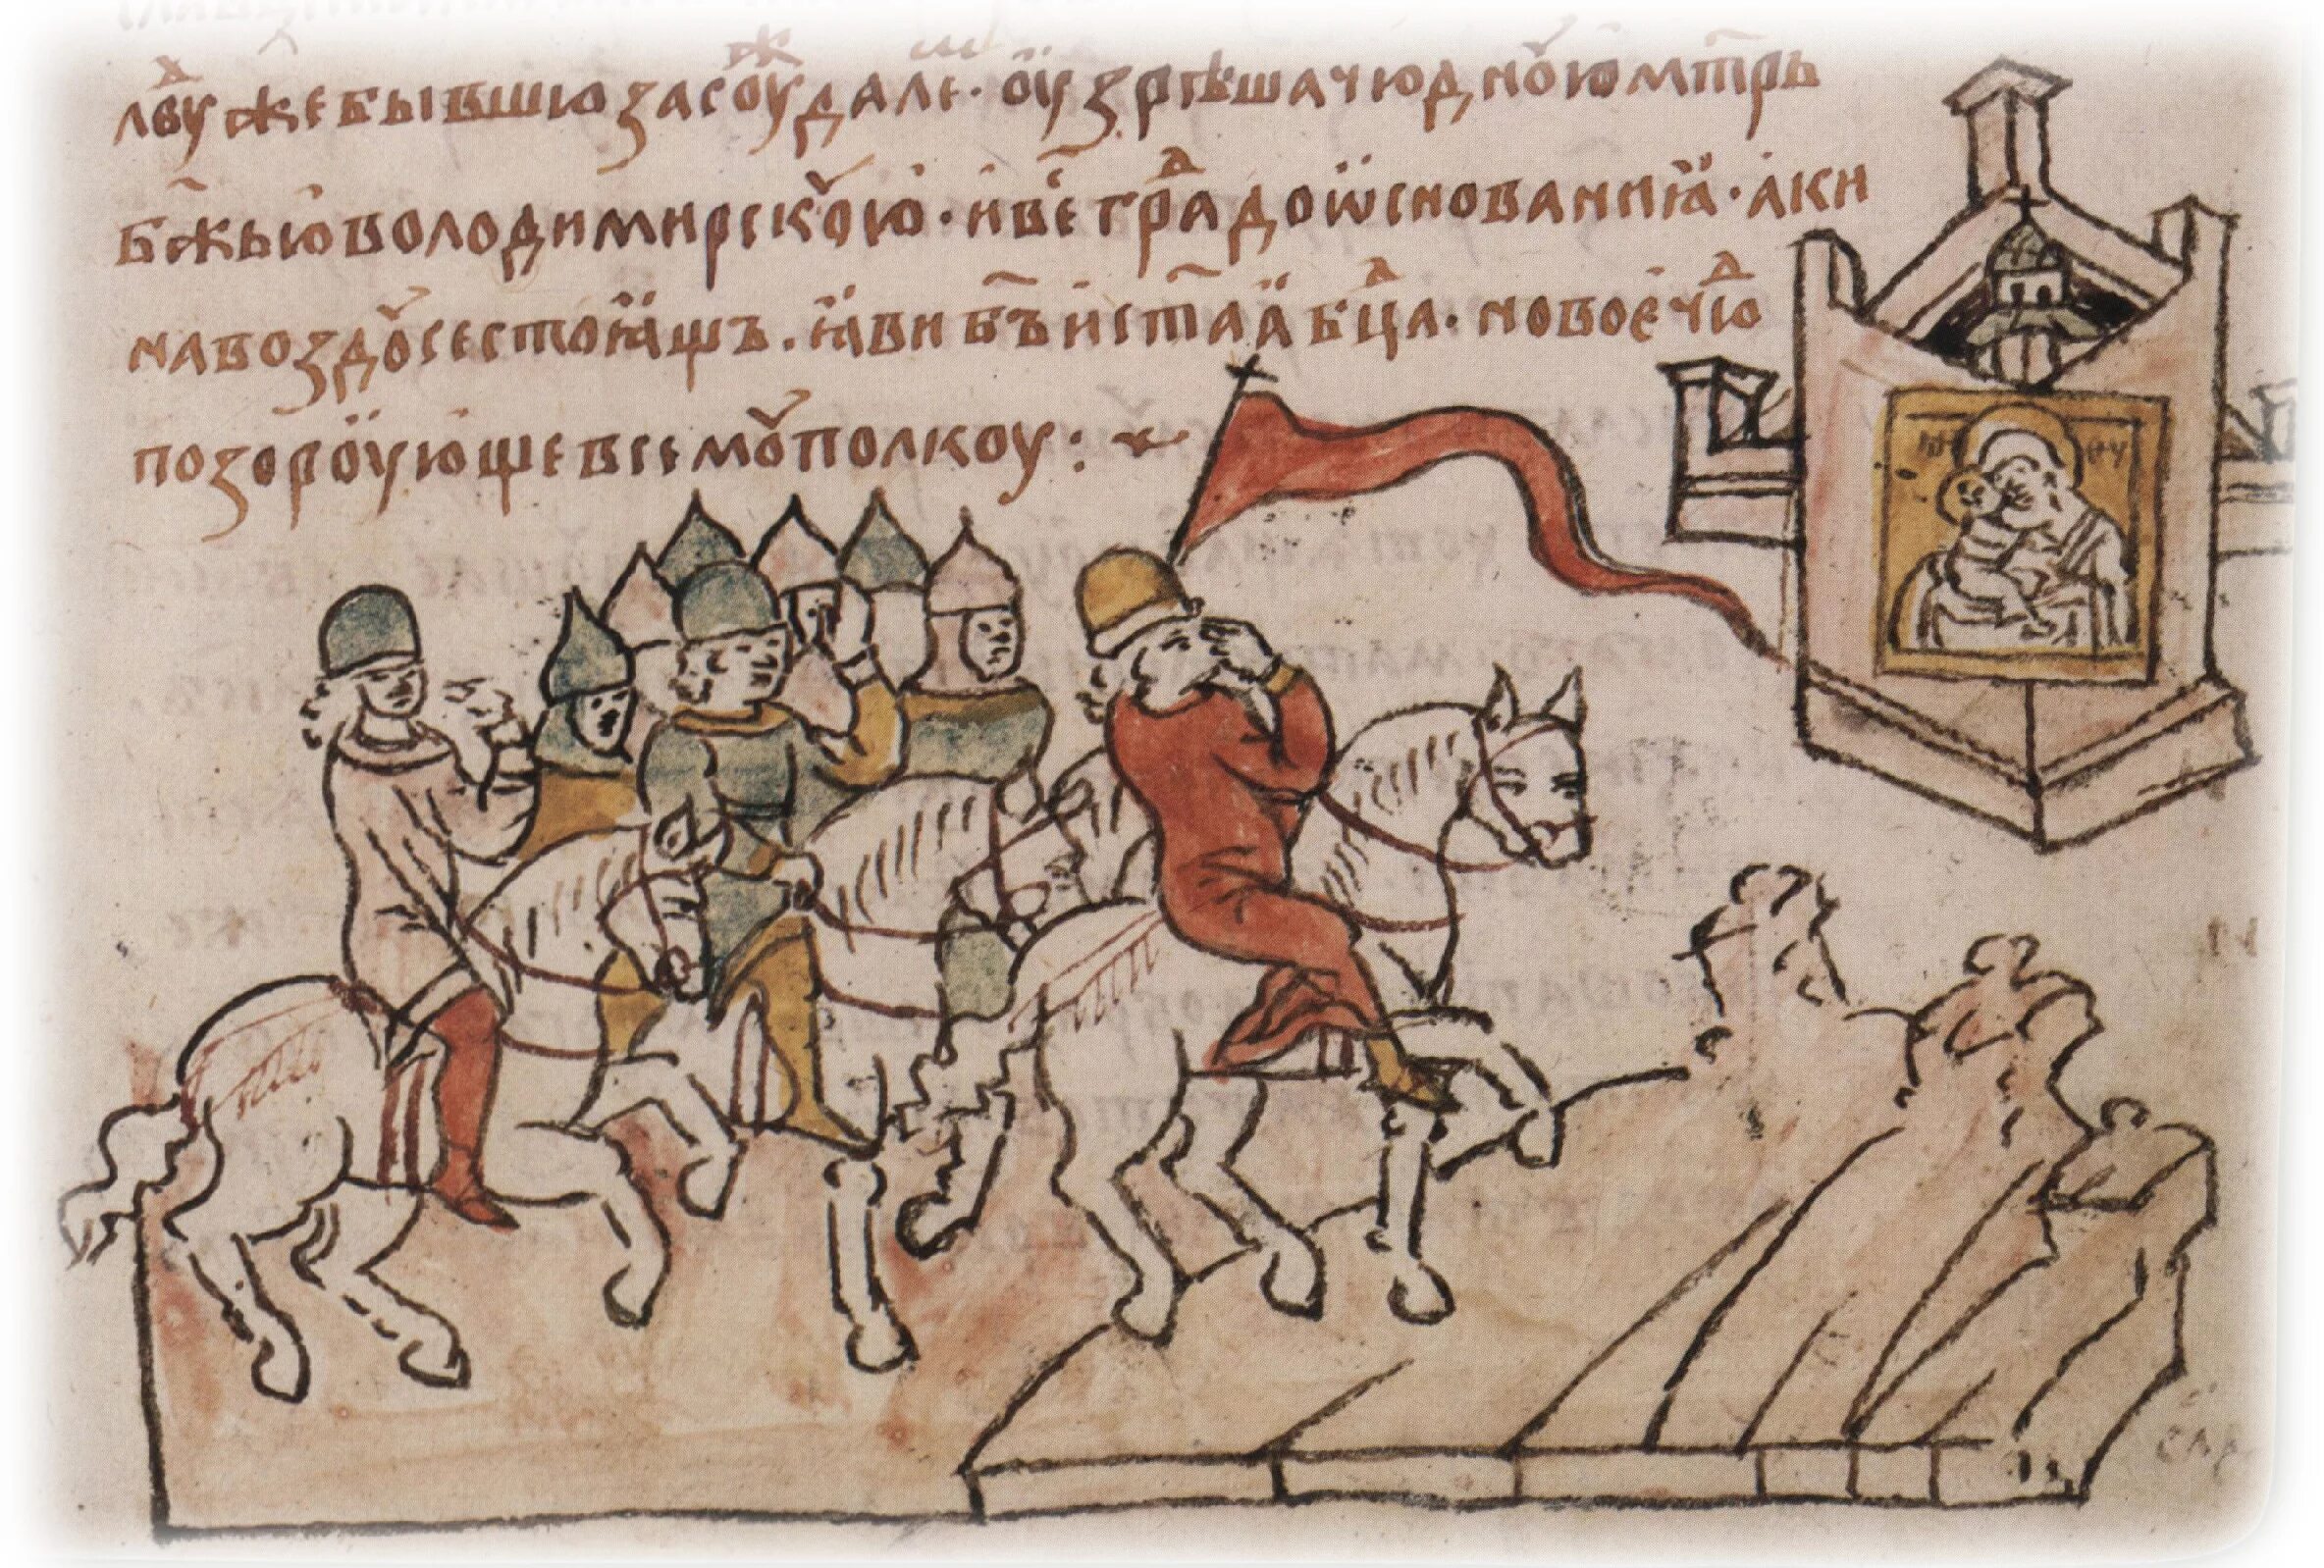 лвⷣу же бывшю за соуⷤдале · оузрѣша чюдноую мт҃рь
бж҃ью володимирскоую · и веⷭ граⷣ до ѡснованиꙗ · аки
на воздоусе стоꙗщь · ꙗви бъ҃ и ст҃аꙗ бцⷣа · новое чюⷣ
позороующе всемоу полкоу :~